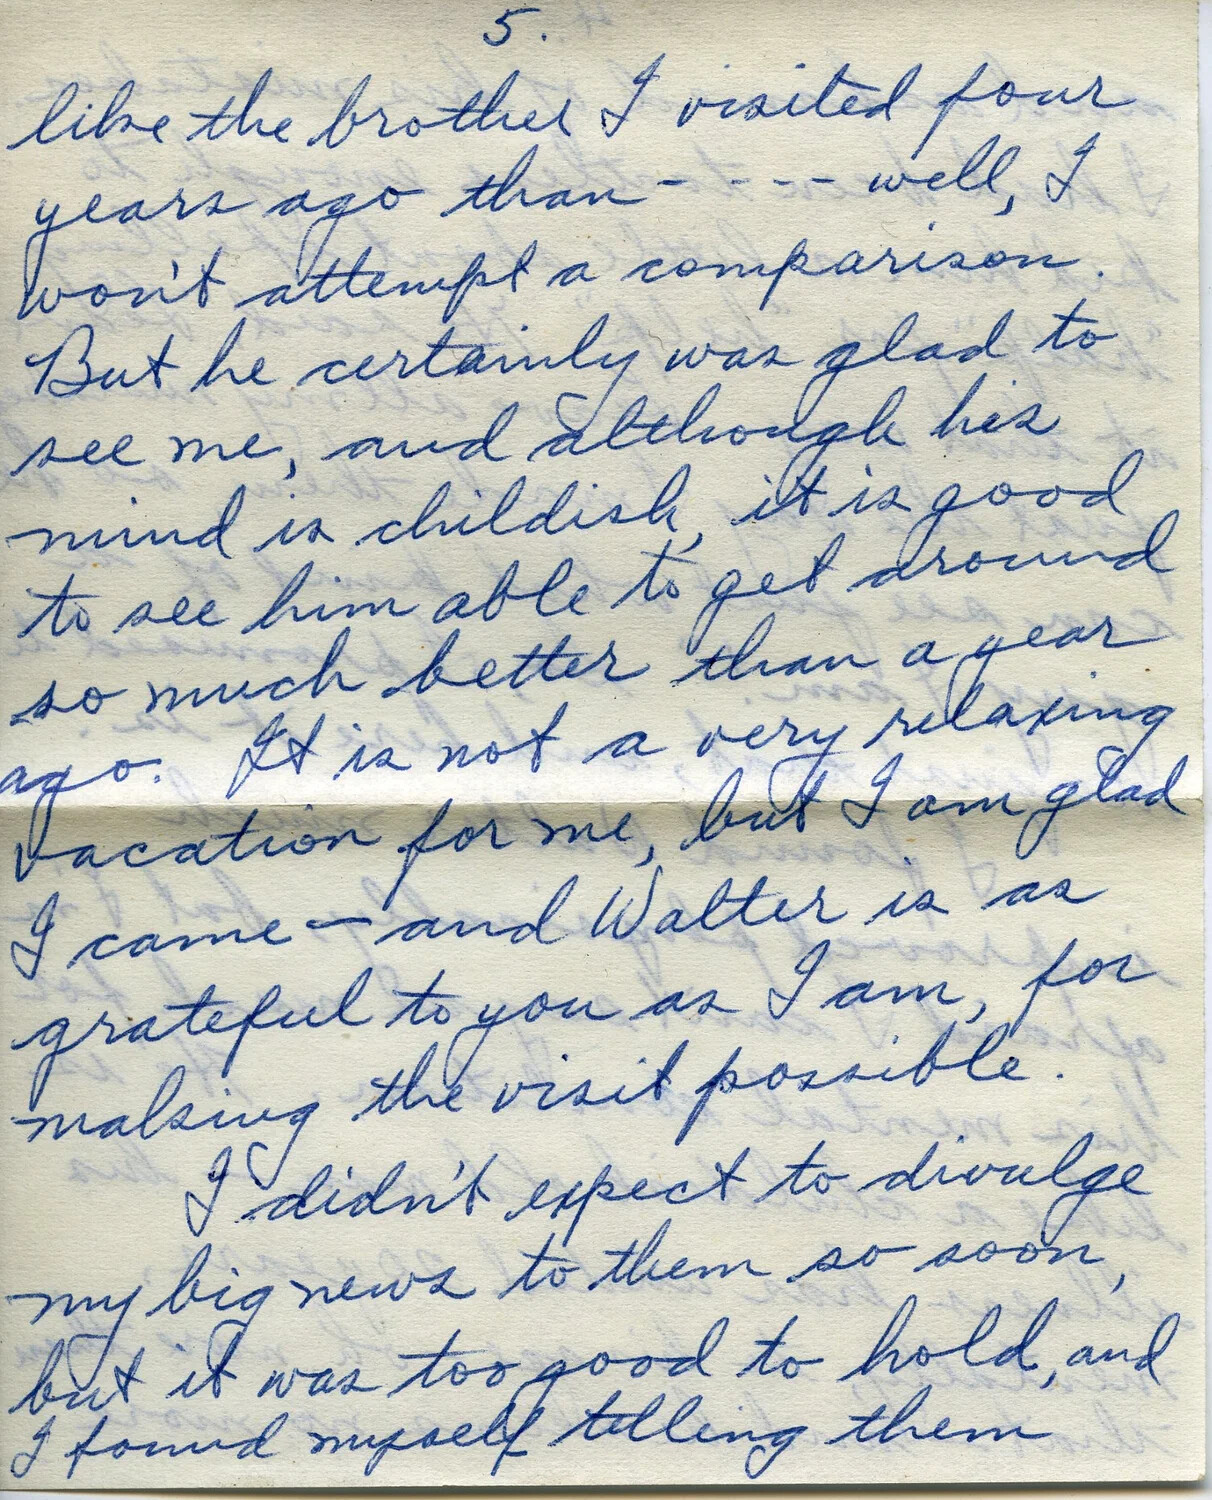 5.
like the brother I visited four
years ago than - - - - well, I
won't attempt a comparison.
But he certainly was glad to
see me, and although his
mind is childish, it is good
to see him able to get around
so much better than a year
ago. It is not a very relaxing
vacation for me, but I am glad
I came — and Walter is as
grateful to you as I am, for
making the visit possible.
I didn't expect to divulge
my big news to them so soon,
but it was too good to hold, and
I found myself telling them